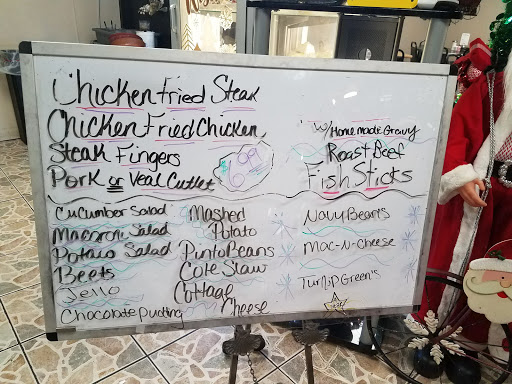 Chicken Fried Steak
Chicken Fried Chicken
Steak Fingers
Pork or Veal Cutlet
w/ Homemade Gravy
Roast Beef
Fish Sticks
Cucumber Salad
Macaroni Salad
Potato Salad
Beets
Jello
Chocolate Pudding
Mashed
Potato
Pinto Beans
Cole Slaw
Cottage
Cheese
Navy Beans
Mac-N-Cheese
Turnip Green's